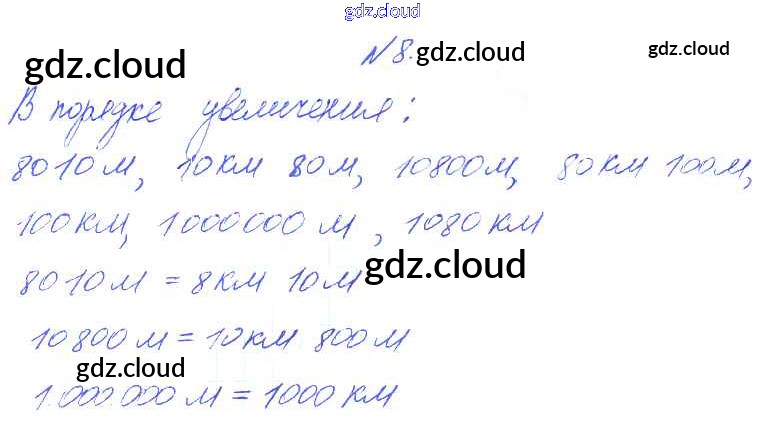 gdz.cloud
№8.
gdz.cloud
gdz.cloud
gdz.cloud
В порядке увеличения:
8010 м, 10 км 80 м, 10800 м, 80 км 100 м,
100 км, 1000000 м, 1080 км
gdz.cloud
8010 м = 8 км 10 м
10800 м = 10 км 800 м
gdz.cloud
1.000.000 м = 1000 км